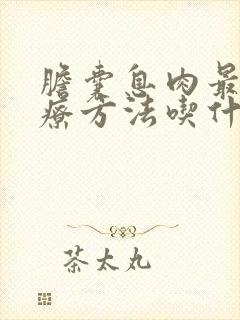 膽囊息肉最
療方法喫什
茶太丸